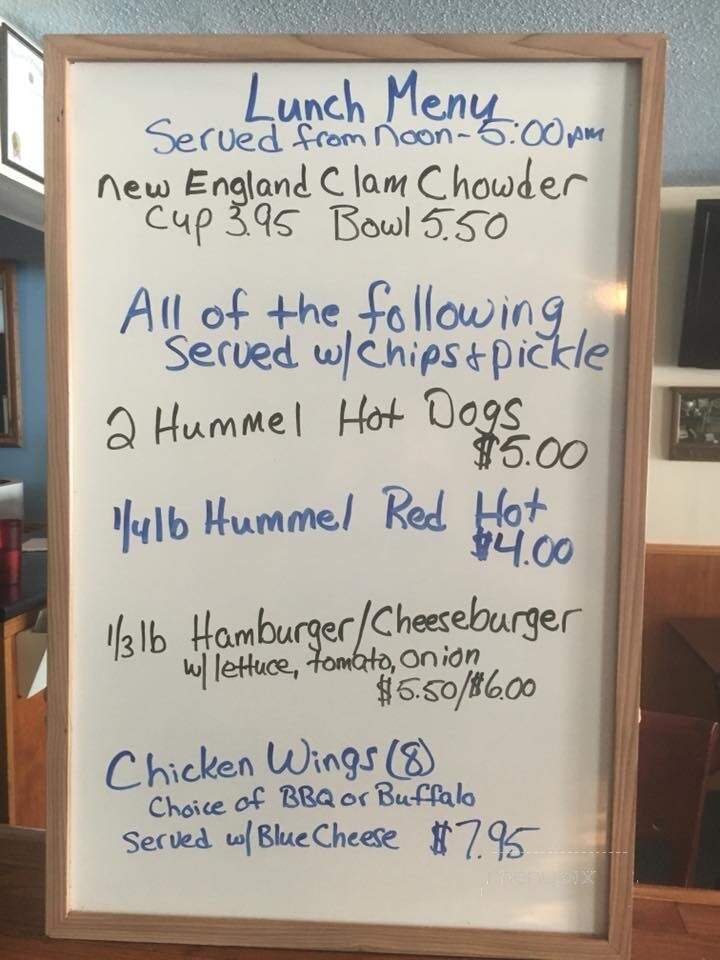 Lunch Menu
Served from noon-5:00pm
new England Clam Chowder
Cup 3.95 Bowl 5.50
All of the following
Served w/chips + pickle
2 Hummel Hot Dogs
$5.00
1/4lb Hummel Red Hot
$4.00
1/3lb Hamburger/Cheeseburger
w/ lettuce, tomato, onion
$5.50/$6.00
Chicken Wings (8)
Choice of BBQ or Buffalo
Served w/ Blue Cheese $7.95